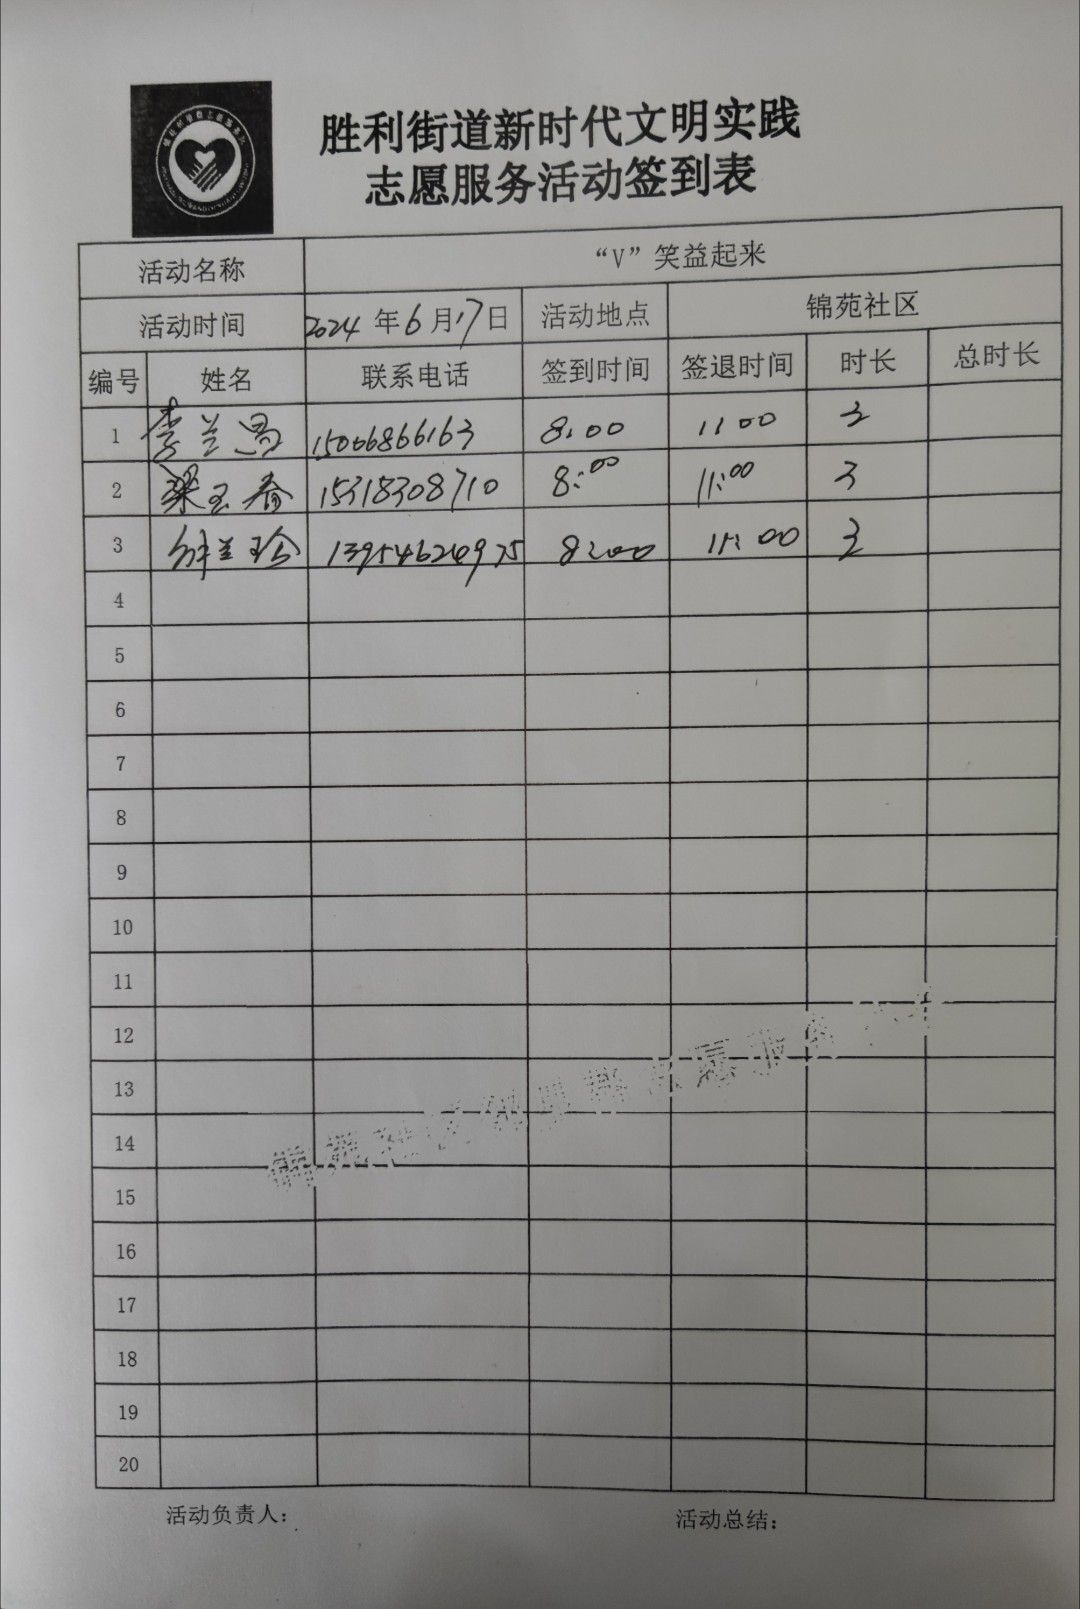 胜利街道新时代文明实践
志愿服务活动签到表
活动名称 “V”笑益起来
活动时间 2024年6月17日 活动地点 锦苑社区
编号 姓名 联系电话 签到时间 签退时间 时长 总时长
1 李兰昌 15006866163 8:00 11:00 3
2 梁玉春 15318308710 8:00 11:00 3
3 兰珍 13954624975 8:00 11:00 3
4
5
6
7
8
9
10
11
12
13
14
15
16
17
18
19
20
锦苑社区 志愿服务
活动负责人： 活动总结：